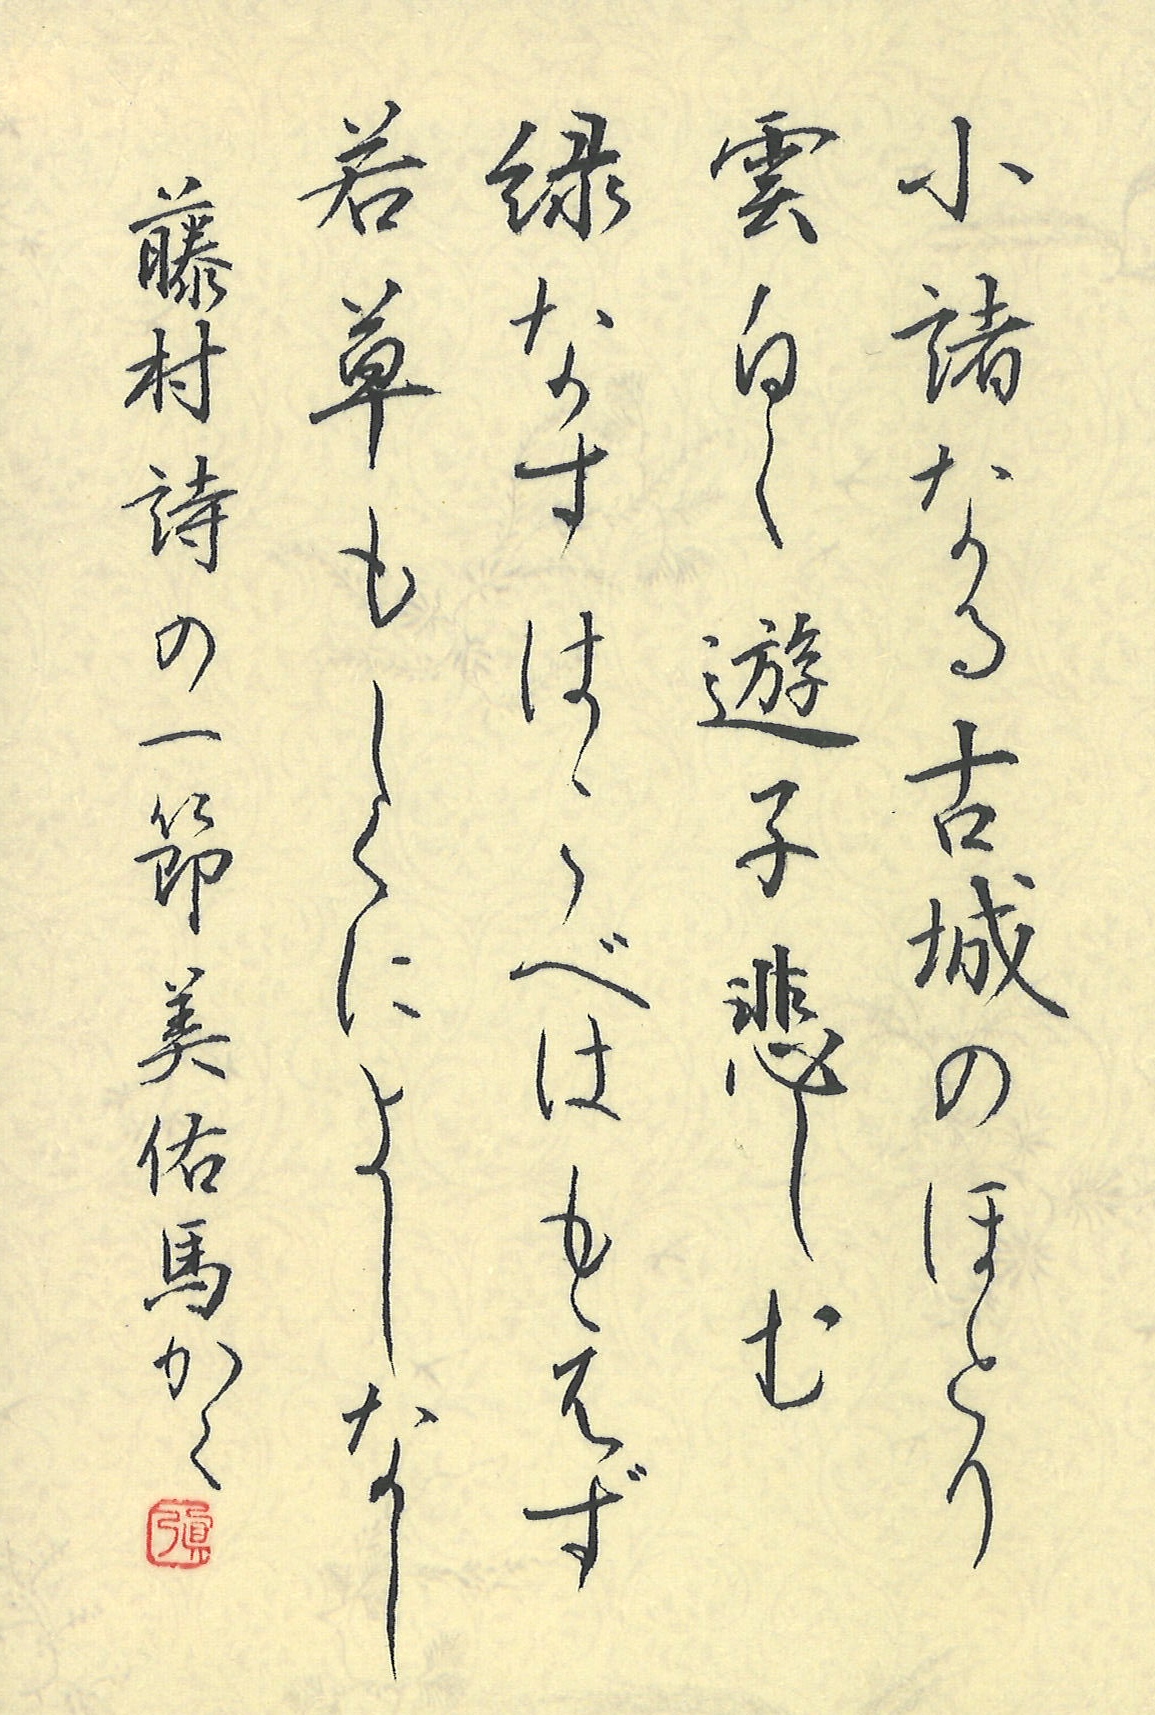 小諸なる古城のほとり
雲白く遊子悲しむ
緑なすはこべはもえず
若草もしくによしなし
藤村詩の一節 美佑馬かく